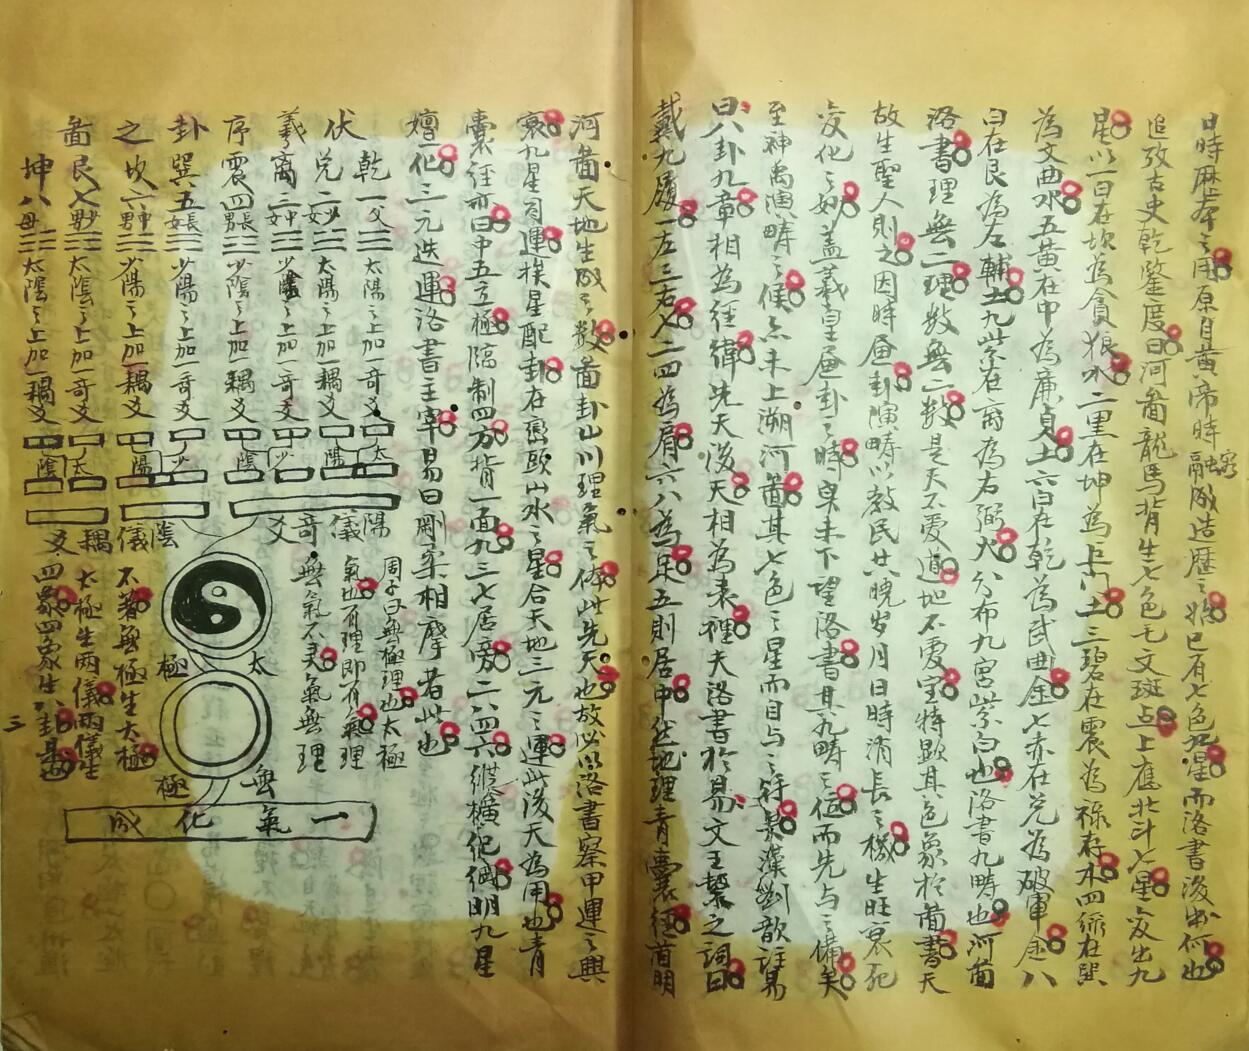 日時厤本之用原自黃帝時融成造歷之始已有七色九星而洛書後出何也
追攷古史乾鑒度曰河啚龍馬背生七色毛文斑点上應北斗七星变出九
星以一白在坎為貪狼水二黑在坤為巨門土三碧在震為祿存木四綠在巽
為文曲水五黃在中為廉貞土六白在乾為武曲金七赤在兌為破軍金八
白在艮為左輔土九紫在离為右弼火分布九宮紫白也洛書九疇也河啚
洛書理無二理数無二数是天不愛道地不愛宝特顯其色象於啚書天
故生聖人則之因時畫卦演疇以教民共曉岁月日時消長之機生旺衰死
变化之妙盖羲皇畫卦之時未下望洛書其九疇之位而先与之備矣
至神禹演疇之候亦未上溯河啚其七色之星而目与之符景藻劉歆註易
曰八卦九章相為經緯先天後天相為表裡夫洛書於易文王繫之詞曰
戴九履一左三右七二四為肩六八為足五則居中位地理青囊經首明
河啚天地生成之数啚卦山川理氣之体此先天也故必以洛書察甲運之興
衰九星司運挨星配卦在巒頭山水之星合天地三元之運此後天為用也青
囊經亦曰中五立極臨制四方背一面九三七居旁二八四六縱橫紀綱明九星
嬗化三元迭運洛書主宰易曰剛柔相摩者此也
伏羲序卦之啚
乾一父 太陽之上加一奇爻
兌二少女 太陽之上加一耦爻
離三中女 少陰之上加一奇爻
震四長男 少陰之上加一耦爻
巽五長女 少陽之上加一奇爻
坎六中男 少陽之上加一耦爻
艮七少男 太陰之上加一奇爻
坤八母 太陰之上加一耦爻
太陽
少陰
少陽
太陰
陽儀奇爻
陰儀耦爻
周子曰無極理也太極
氣也有理即有氣理
無氣不灵氣無理
不著無極生太極
太極生两儀两儀生
四象四象生八卦是也
太極
無極
一氣化成
三